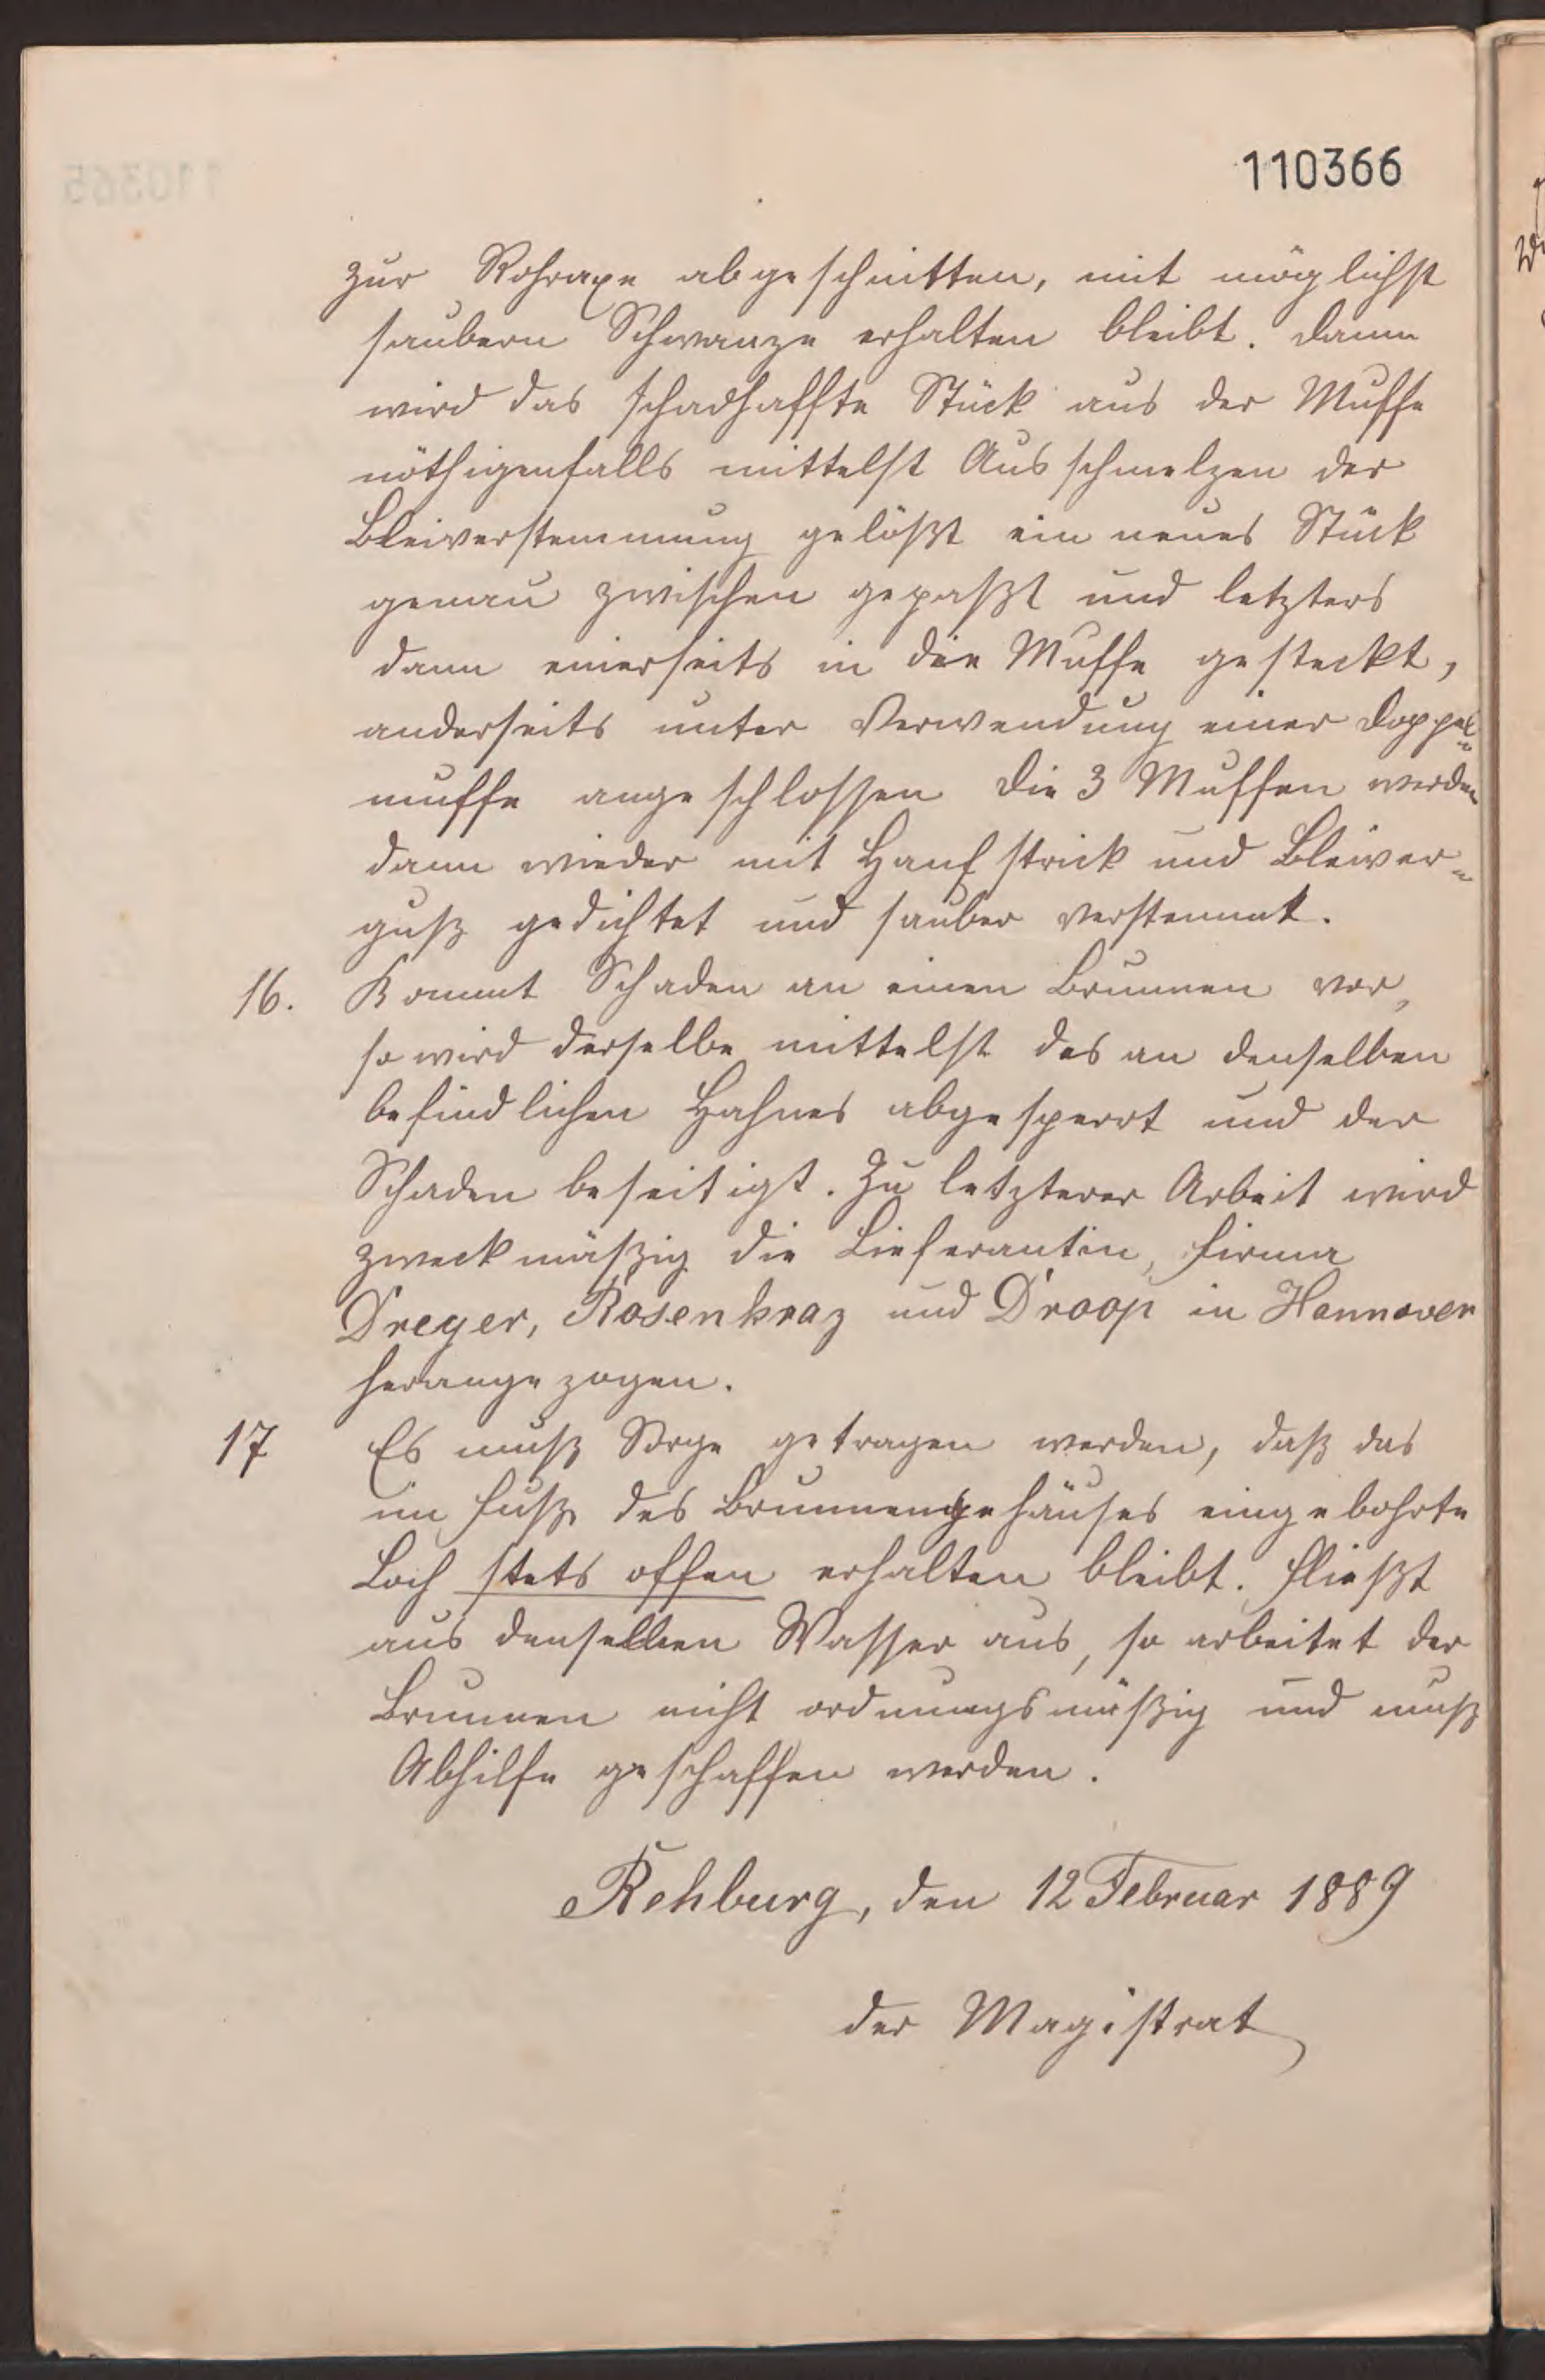 110366
zur Rohraxe abgeschnitten, mit möglichst
saubern Schwanze erhalten bleibt. Dann
wird das schadhaffte Stück aus der Muffe
nöthigenfalls mittelst Ausschmelzen der
Bleiverstemmung gelößt ein neues Stück
genau zwischen gepaßt und letzters
dann einerseits in die Muffe gesteckt,
anderseits unter Verwendung einer Doppel-
muffe angeschlossen Die 3 Muffen werden
dann wieder mit Hanfstrick und Bleiver-
guß gedichtet und sauber verstemmt.
16. Kommt Schaden an einen Brunnen vor,
so wird derselbe mittelst des an denselben
befindlichen Hahnes abgesperrt und der
Schaden beseitigt. Zu letzterer Arbeit wird
zweckmäßig die Lieferantin, Firma
Dreyer, Rosenkraz und Droop in Hannover
herangezogen.
17 Es muß Sorge getragen werden, daß das
im Fuße des Brunnengehäuses eingebohrte
Loch stets offen erhalten bleibt. Fließt
aus denselben Wasser aus, so arbeitet der
Brunnen nicht ordnungsmäßig und muß
Abhilfe geschaffen werden.
Rehburg, den 12 Februar 1889
der Magistrat